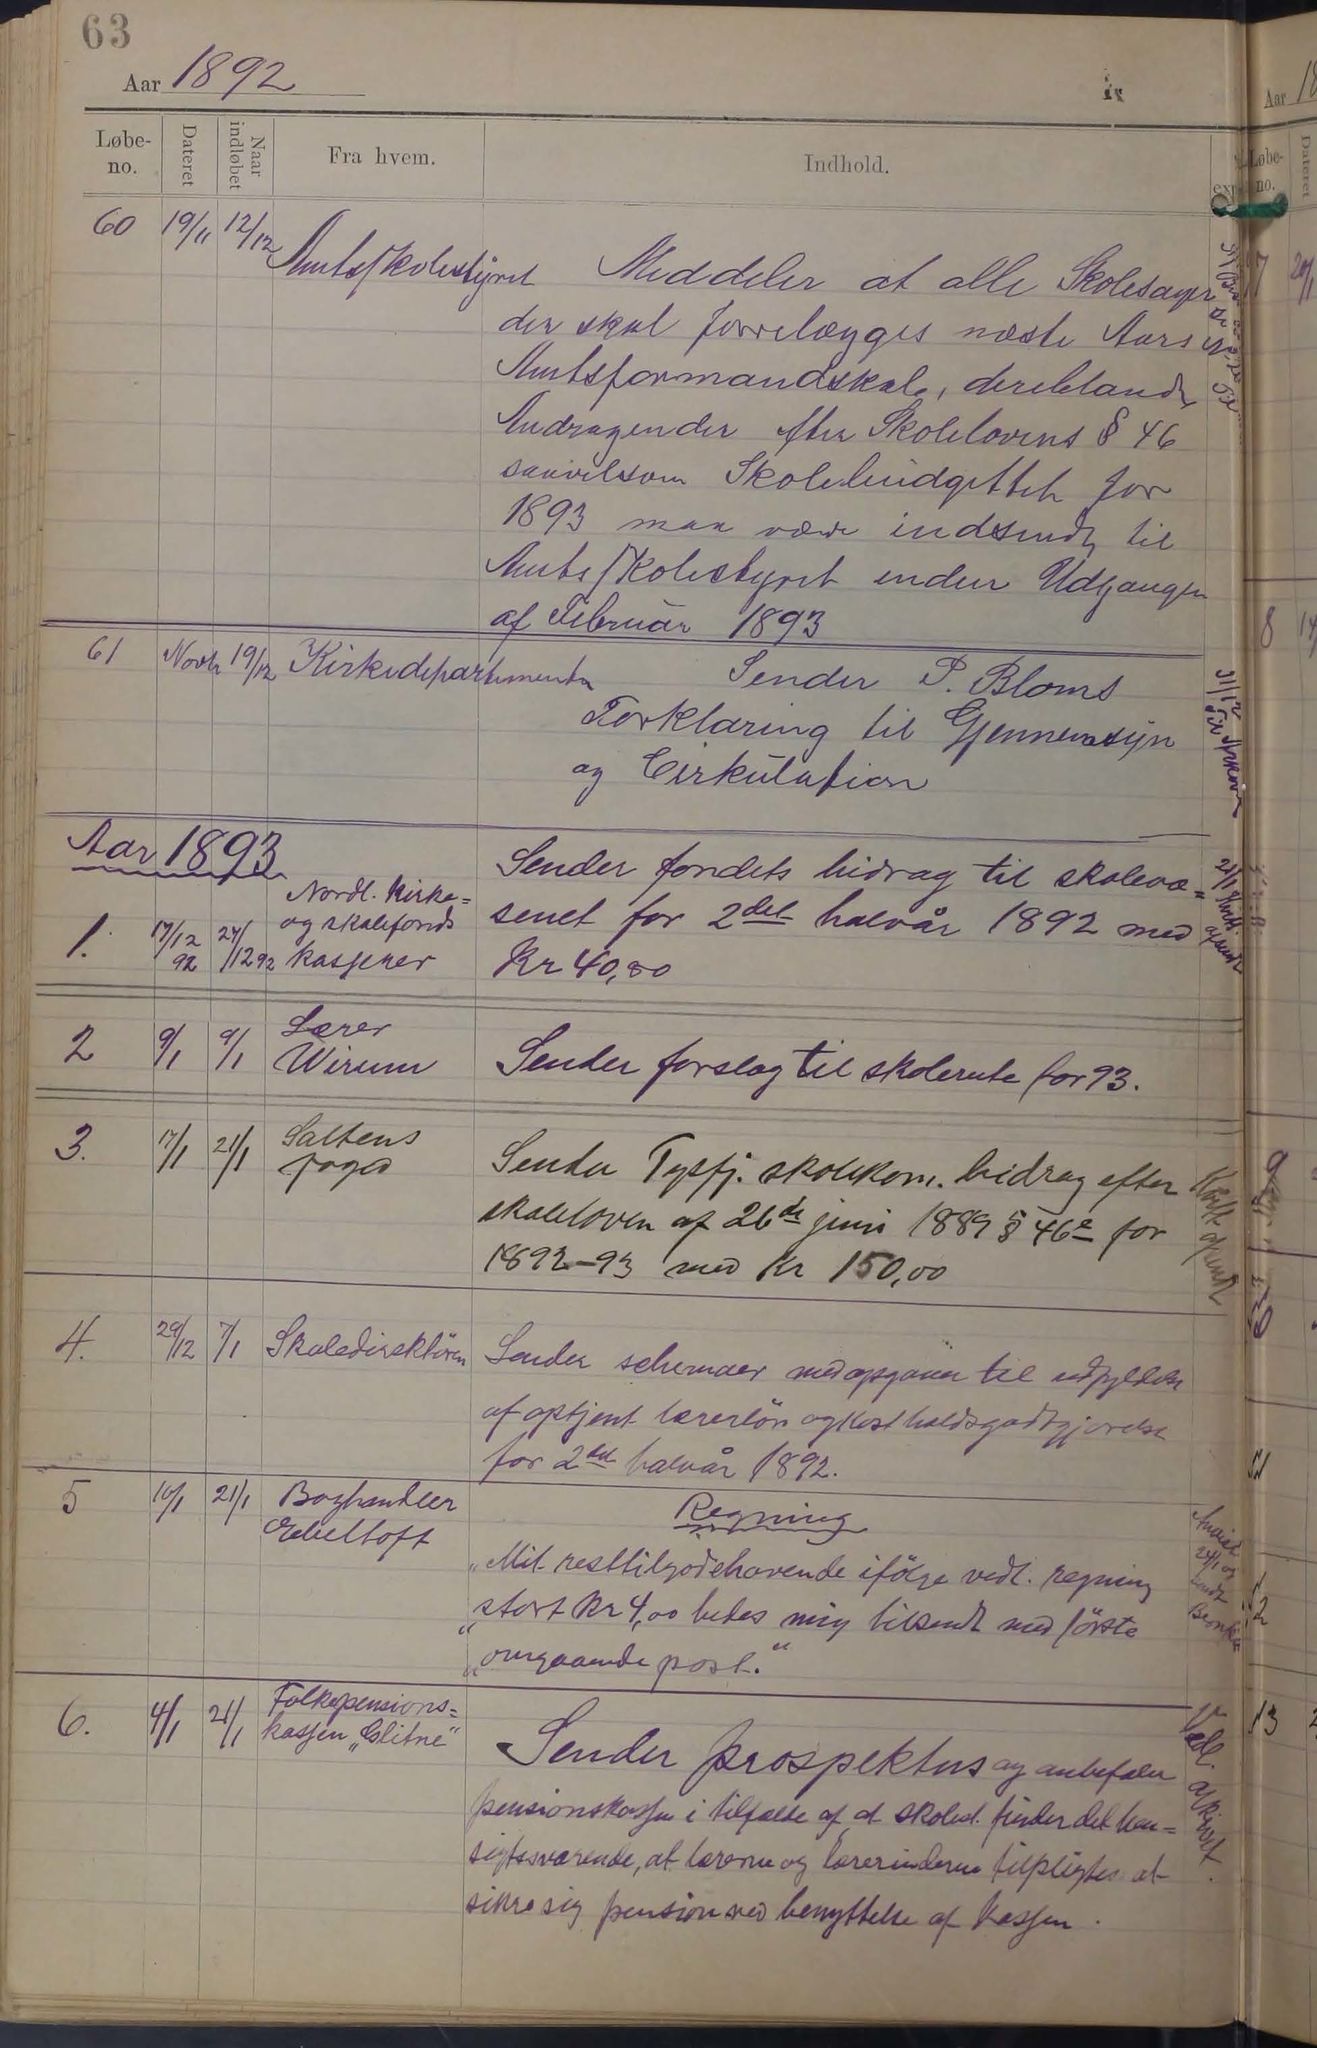 63
Aar 1892
Løbe-no. Dateret Naar indløbet Fra hvem. Indhold.
60 19/11 12/12 Amtsskolestyret Meddeler at alle Skolesager
der skal forelægges næste Aars
Amtsformandskab, deriblandt
Andragender efter Skolelovens § 46
saavelsom Skolebudgettet for
1893 maa være indsendt til
Amtsskolestyret inden Udgangen
af Februar 1893
61 Novbr 19/12 Kirkedepartementet Sender P. Bloms
Forklaring til Gjennemsyn
og Cirkulation
31/12 Til Arkiv
Aar 1893
1. 17/12 92 27/12 92 Nordl. Kirke=
og skolefonds
kasserer
Sender fondets bidrag til skolevæ=
senet for 2det halvår 1892 med
Kr 40,00
2 9/1 9/1 Lærer
Wirum Sender forslag til skolerute for 93.
3. 17/1 21/1 Saltens
foged
Sender Tysfj. skolekom. bidrag efter
skoleloven af 26de juni 1889 § 46 for
1892–93 med Kr 150,00
4. 29/12 7/1 Skoledirektören Sender schemaer med opgaver til udfyldelse
af optjent lærerlön og kostholdsgodtgjörelse
for 2det halvår 1892.
5 10/1 21/1 Boghandler
Ebeltoft
Regning
„Mit resttilgodehavende ifölge vedl. regning
„stort Kr 4,00 bedes mig tilsendt med förste
„omgaaende post.“
6. 4/1 21/1 Folkepensions=
kassen „Glitne“
Sender prospektus og anbefaler
pensionskassen i tilfælde af at skolest. finder det hen=
sigtssvarende, at lærerne og lærerinderne tilpligtes at
sikre sig pension ved benyttelse af kassen.
Aar 18
Løbe-no. Dateret
7 20/1
8
9
12
13